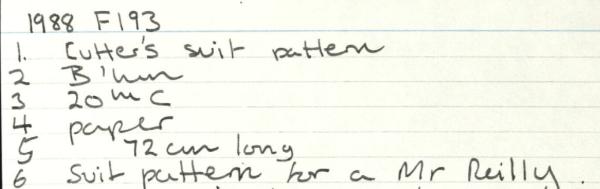 1988 F193
1. Cutter's suit pattern
2 B'ham
3 20th C
4 paper
5 72cm long
6 Suit pattern for a Mr Reilly.